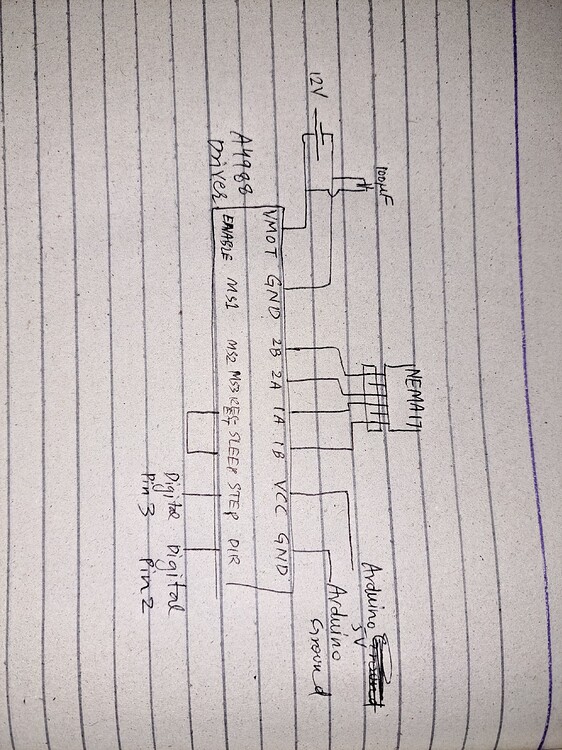 12V
100µF
A4988
Driver
VMOT GND 2B 2A 1A 1B VCC GND
ENABLE MS1 MS2 MS3 RESET SLEEP STEP DIR
NEMA17
Digital
Pin 3
Digital
Pin 2
Arduino
5V
Arduino
Ground